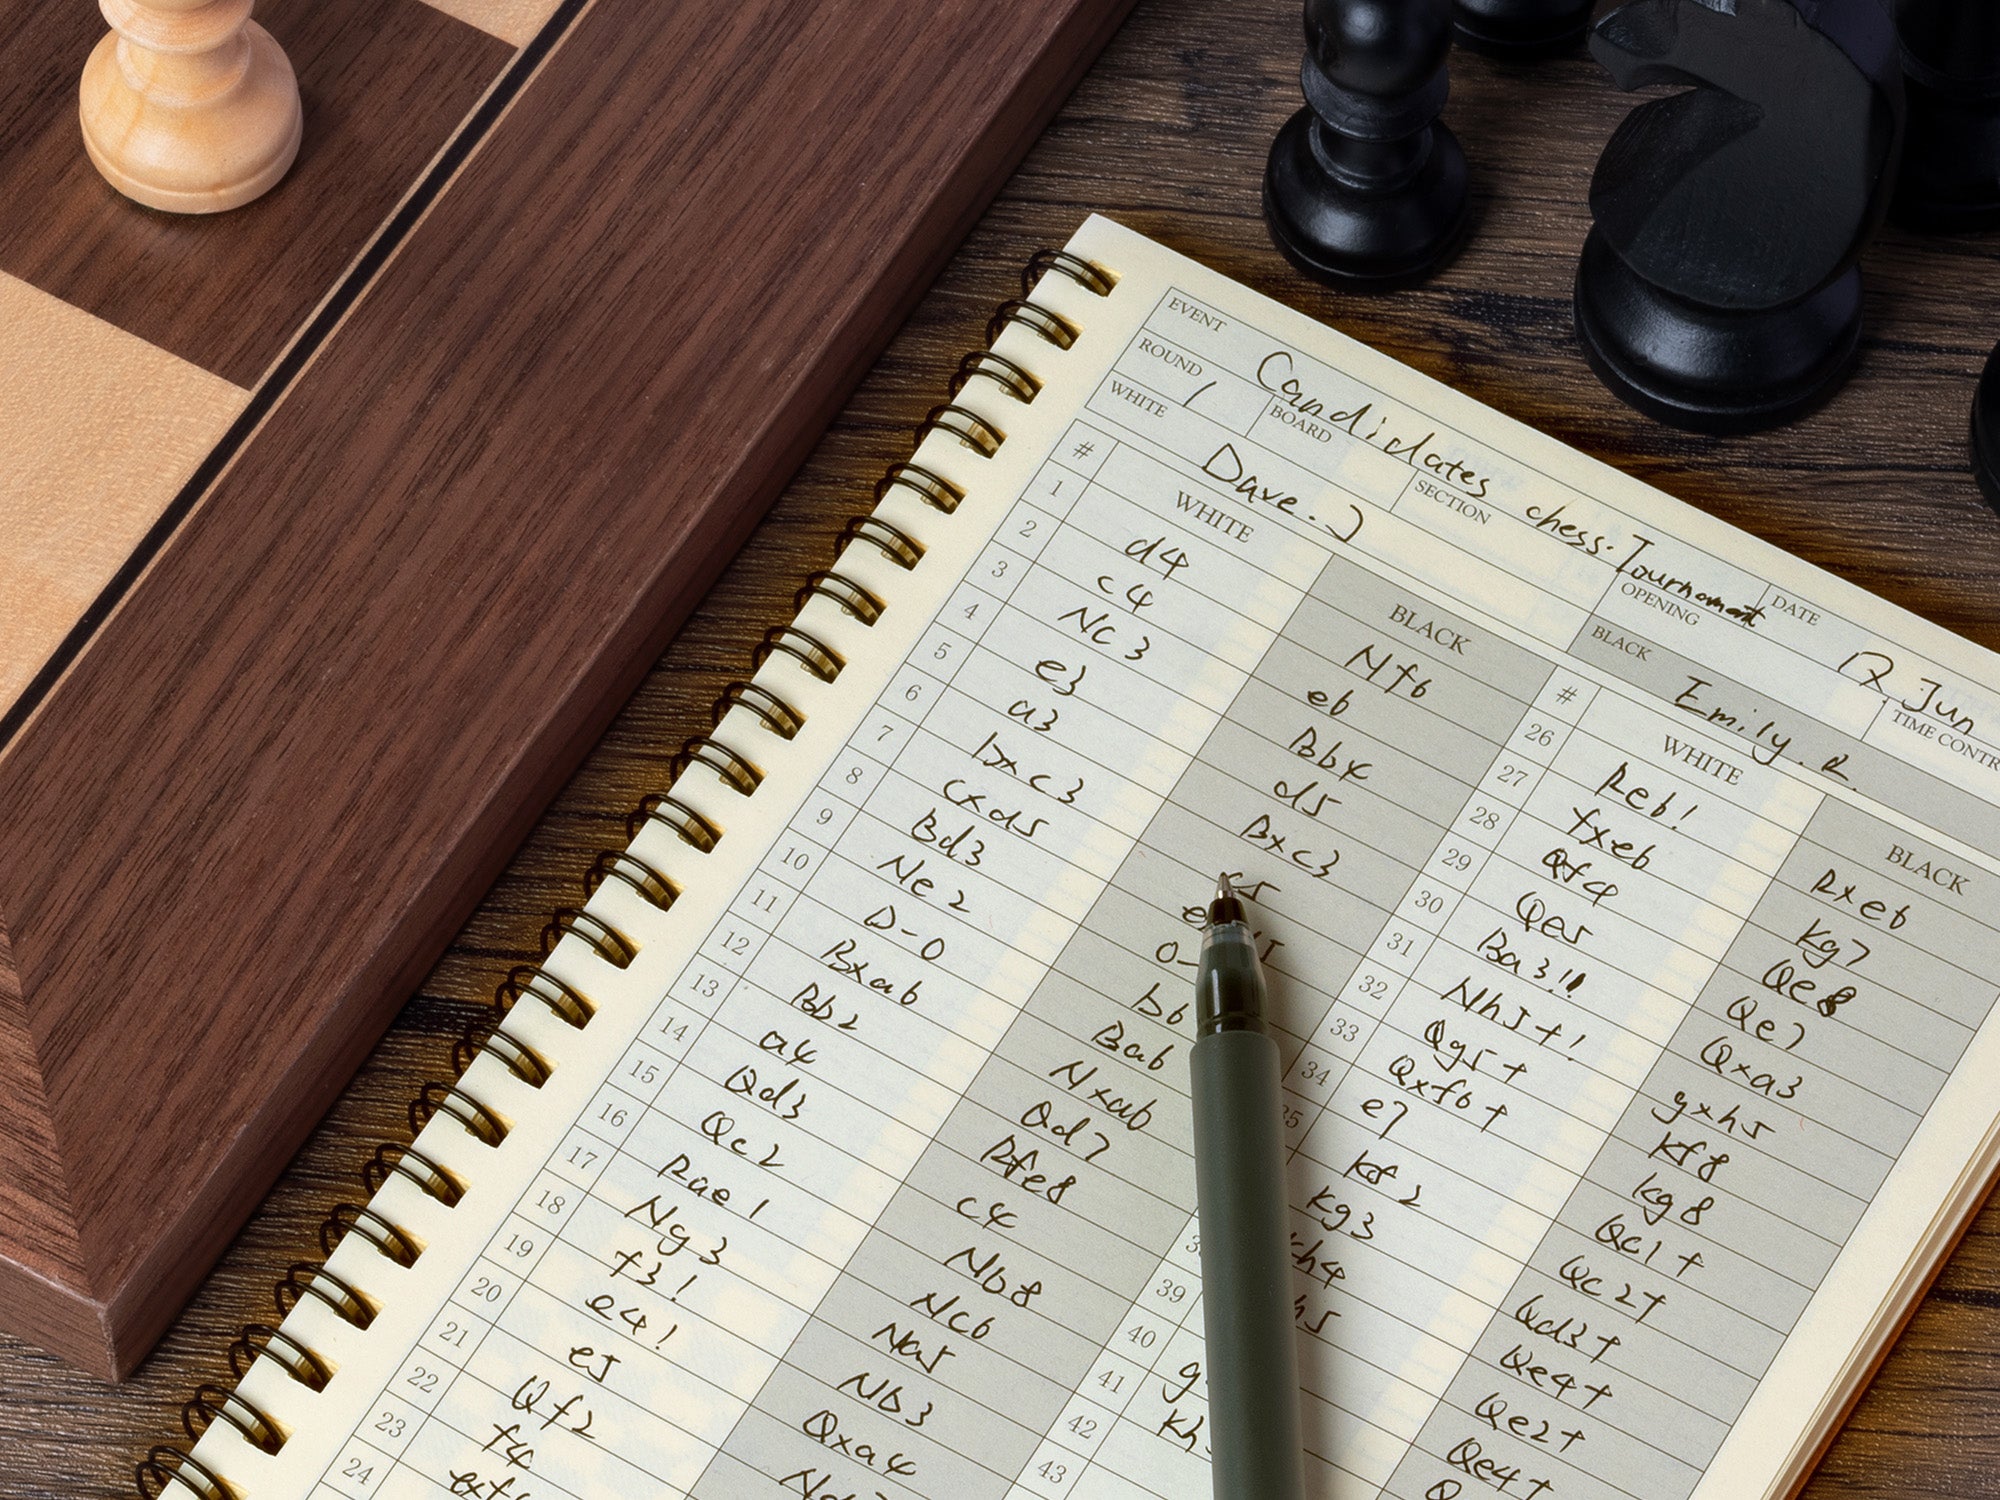 EVENT Candidates chess. Tournament DATE 12 Jun
ROUND 1 BOARD SECTION OPENING TIME CONTR
WHITE Dave. J BLACK Emily. R.
# WHITE BLACK # WHITE BLACK
1 d4 Nf6 26 Re6! Rxe6
2 c4 e6 27 fxe6 Kg7
3 Nc3 Bb4 28 Qf4 Qe8
4 e3 d5 29 Qe5 Qe7
5 a3 Bxc3 30 Ba3!! Qxa3
6 bxc3 c5 31 Nh5+! gxh5
7 cxd5 32 Qg5+ Kf8
8 Bd3 0- 33 Qxf6+ Kg8
9 Ne2 b6 34 e7 Qc1+
10 0-0 Ba6 35 Kf2 Qc2+
11 Bxa6 Nxa6 Kg3 Qd3+
12 Bb2 Qd7 Kh4 Qe4+
13 a4 Rfe8 h5 Qe2+
14 Qd3 c4 39 Qe4+
15 Qc2 Nb8 40 g
16 Rae1 Nc6 41 Kh
17 Ng3 Na5 42
18 f3! Nb3 43
19 e4! Qxa4
20 e5
21 Qf2
22 f4
23 exf
24